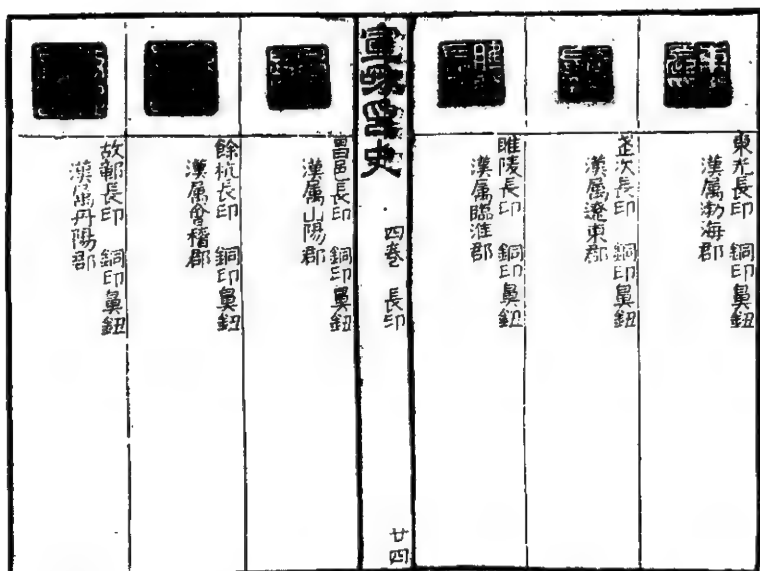 東光長印 銅印鼻鈕
漢属渤海郡
銅印鼻鈕
漢属遼東郡
睢陵長印 銅印鼻鈕
漢属臨淮郡
史
四卷 長印
廿四
昌邑長印 銅印鼻鈕
漢属山陽郡
餘杭長印 銅印鼻鈕
漢属會稽郡
故鄣長印 銅印鼻鈕
漢属丹陽郡